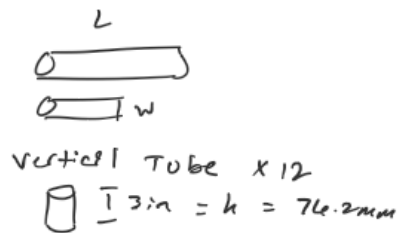 L
W
Vertical Tube x 12
I 3in = h = 76.2mm